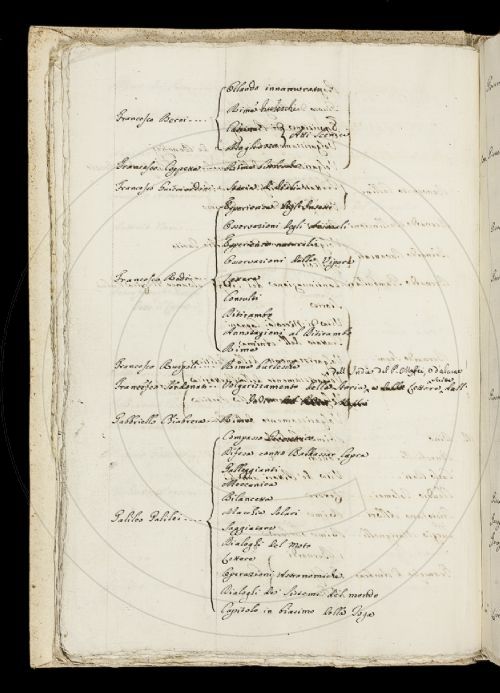 Orlando innamorato
Rime burlesche
Francesco Berni.... Catrina Atti Scenici
Mogliazzo
Francesco Coppetta Rime burlesche
Francesco Guicciardini Storia d'Italia
Esperienze degl'Insetti
Osservazioni degli Animali
Esperienze naturali
Osservazioni delle Vipere
Francesco Redi... Lettere
Consulti
Ditirambo
Annotazioni al Ditirambo
Rime
Francesco Ruspoli Rime burlesche
dell'Indie del P. Maffei, e d'alcune
Francesco Serdonati Volgarizzamento della Storia, e Lettere dall'
Indie
Gabbriello Chiabrera Rime
Compasso
Difesa contro Baldassar Capra
Galleggianti
Meccanica
Bilancetta
Macchie Solari
Galileo Galilei.... Saggiatore
Dialoghi del Moto
Lettere
Operazioni Astronomiche
Dialoghi de' Sistemi del mondo
Capitolo in biasimo della Toga